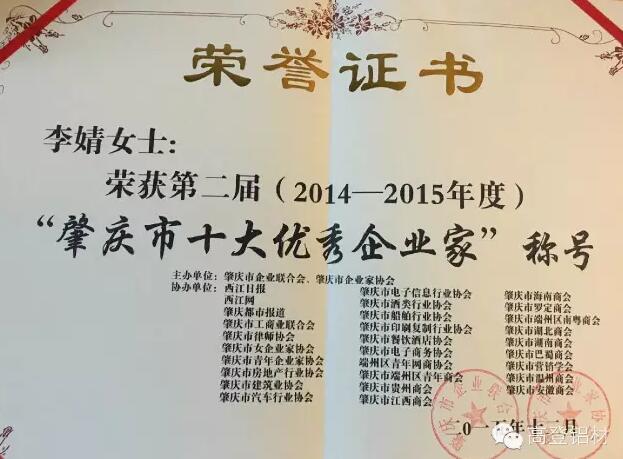 荣誉证书
李婧女士：
荣获第二届（2014—2015年度）
“肇庆市十大优秀企业家”称号
主办单位：肇庆市企业联合会、肇庆市企业家协会
协办单位：西江日报
西江网
肇庆都市报道
肇庆市工商业联合会
肇庆市律师协会
肇庆市女企业家协会
肇庆市青年企业家协会
肇庆市房地产行业协会
肇庆市建筑业协会
肇庆市汽车行业协会
肇庆市电子信息行业协会
肇庆市酒类行业协会
肇庆市船舶行业协会
肇庆市印刷复制行业协会
肇庆市餐饮酒店协会
肇庆市电子商务协会
端州区青年网商协会
肇庆市端州区青年商会
肇庆市贵州商会
肇庆市江西商会
肇庆市海南商会
肇庆市罗定商会
肇庆市端州区南粤商会
肇庆市湖北商会
肇庆市湖南商会
肇庆市巴蜀商会
肇庆市营销学会
肇庆市温州商会
肇庆市安徽商会
二〇一五年十二月
高登铝材